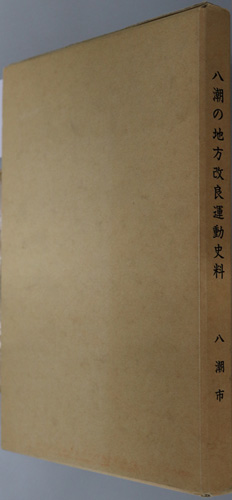 八潮の地方改良運動史料
八潮市